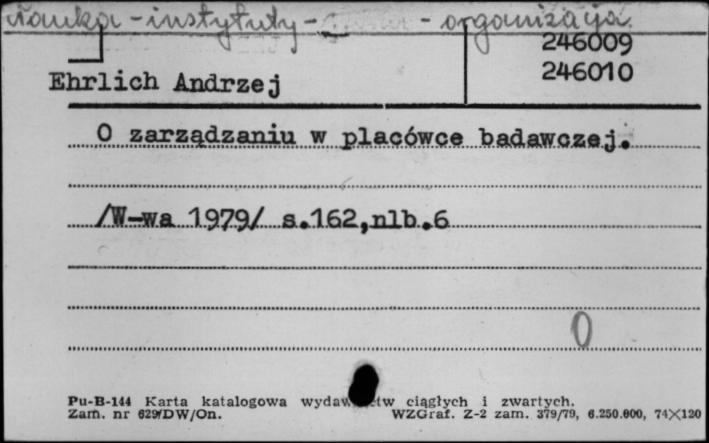 nauka - instytuty - - organizacja
246009
Ehrlich Andrzej
246010
O zarządzaniu w placówce badawczej.
/W-wa 1979/ s.162,nlb.6
0
Pu-B-144 Karta katalogowa ciągłych i zwartych.
Zam. nr 629/DW/On. WZGraf. Z-2 zam. 379/79, 6.250.000, 74×120